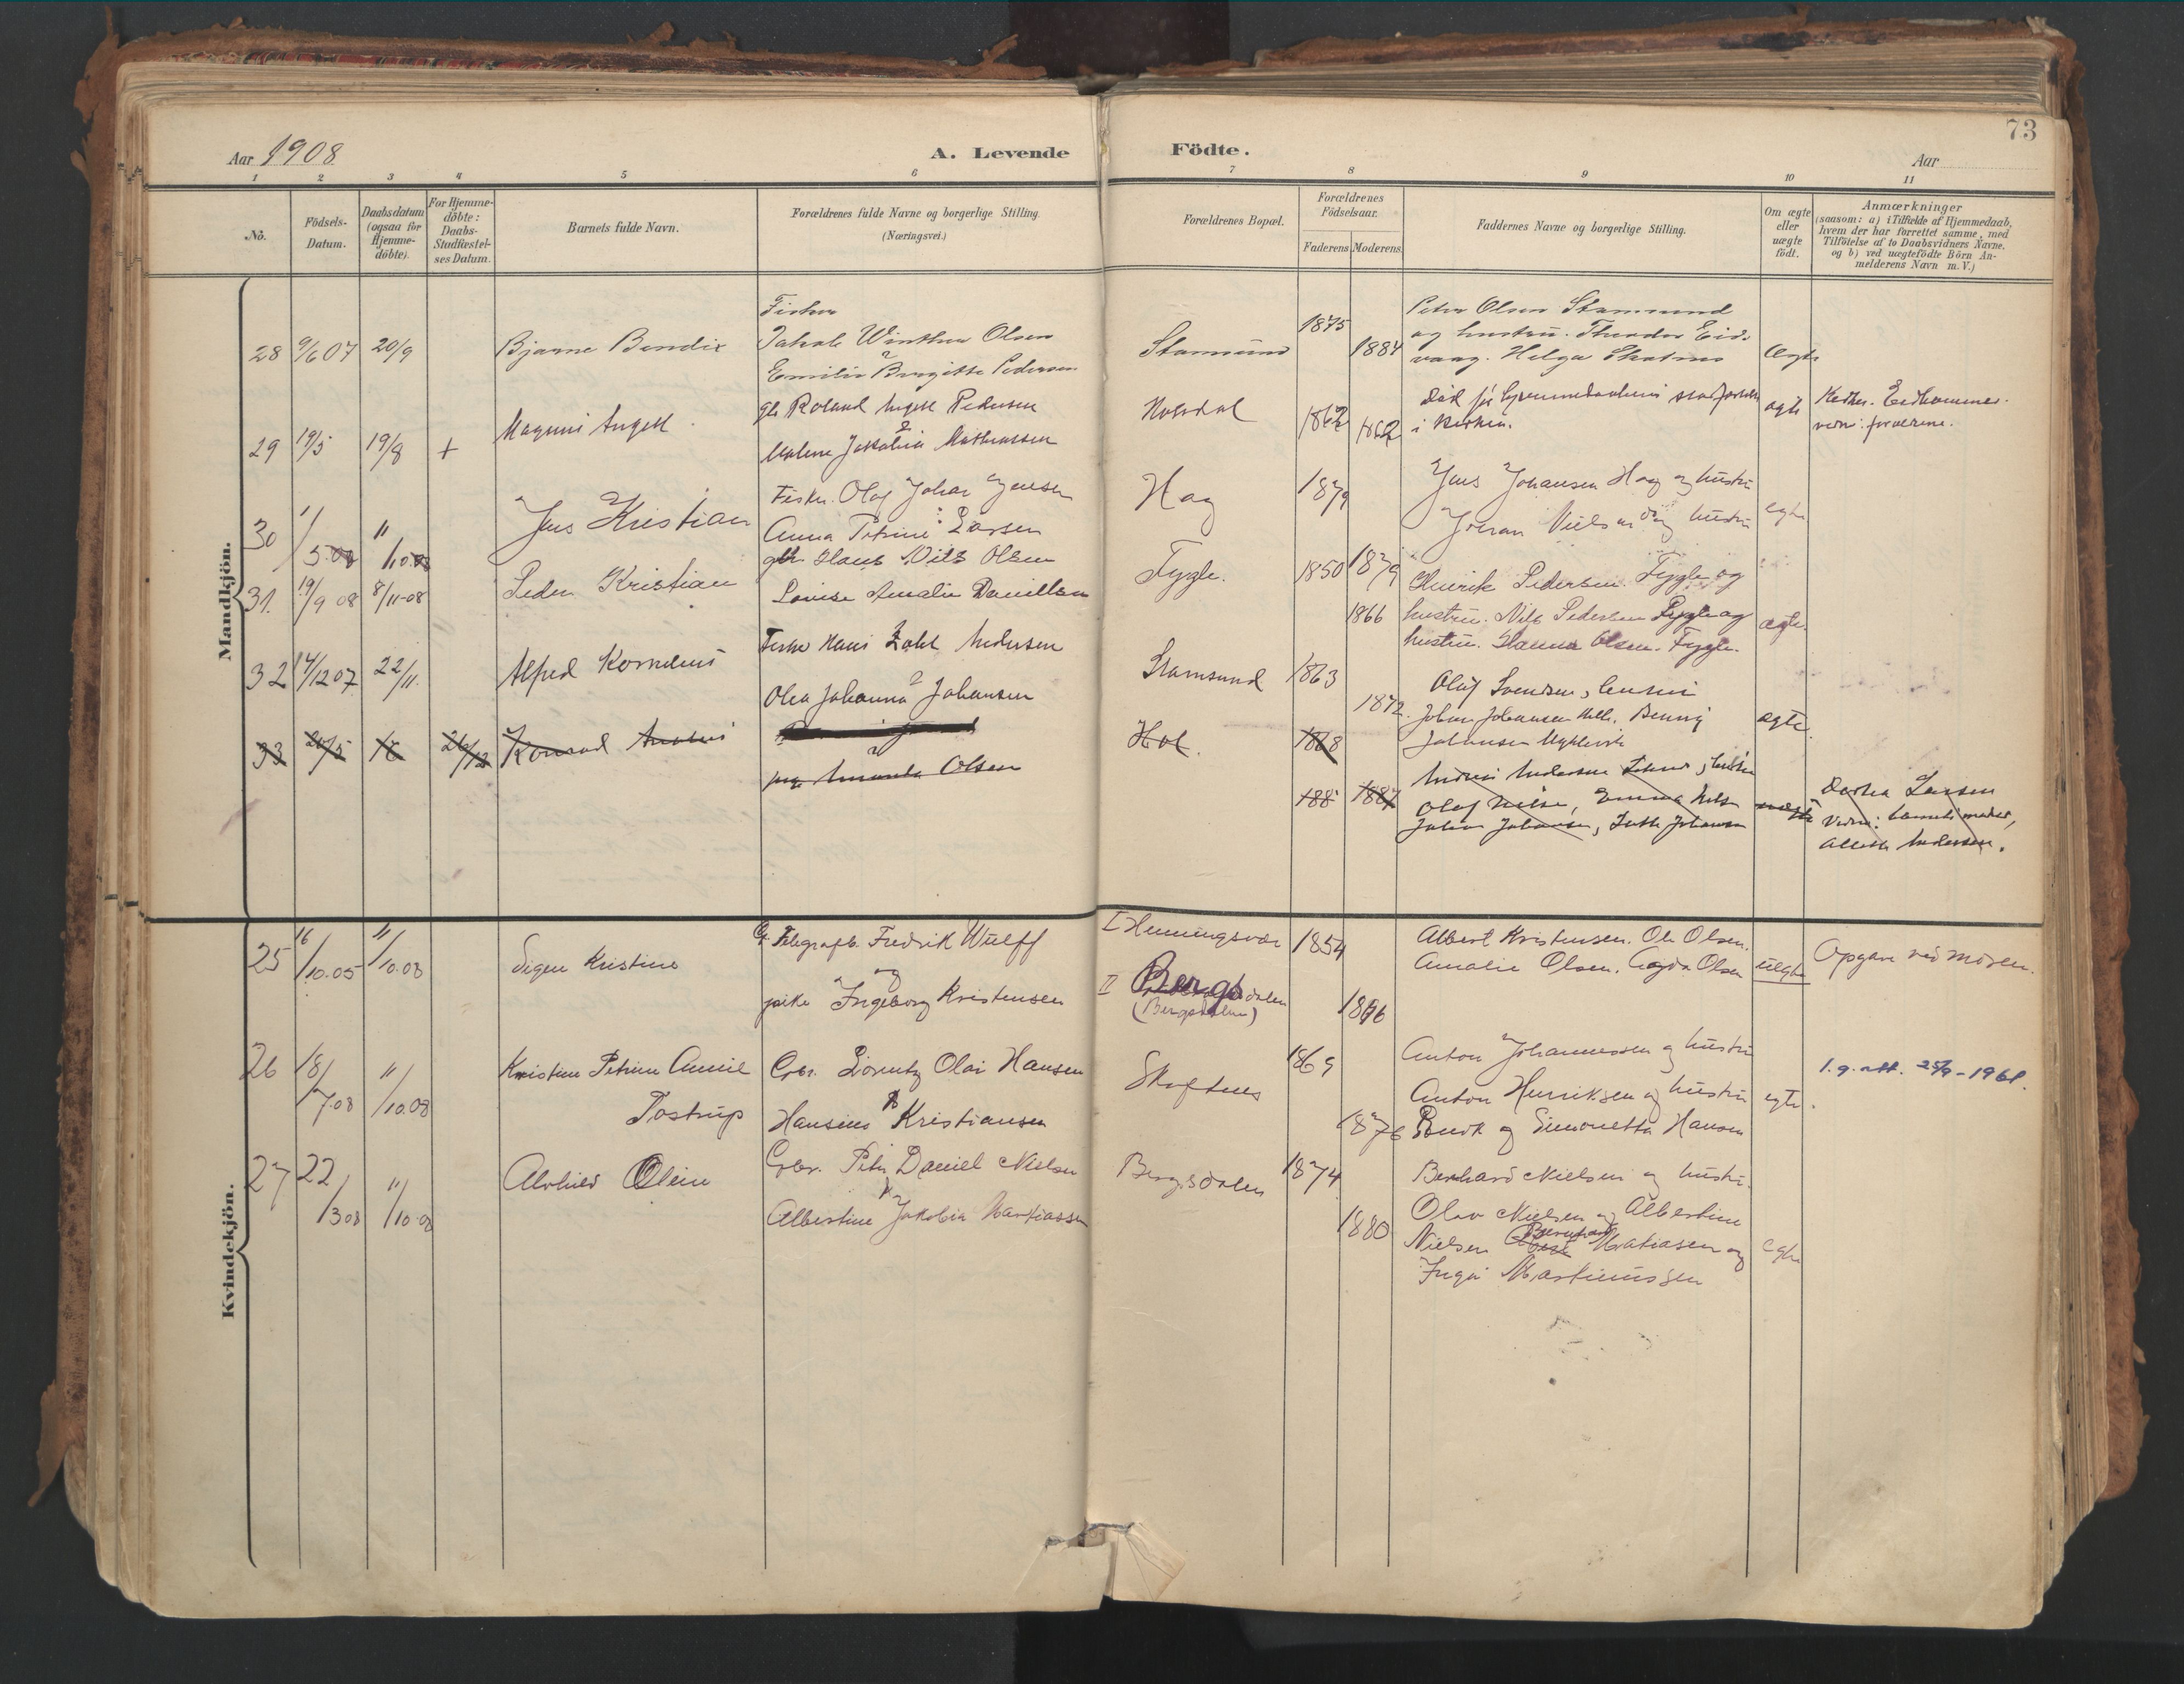 73
Aar 1908
A. Levende Födte.
Aar
1 2 3 4 5 6 7 8 9 10 11
No.
Födsels-Datum.
Daabsdatum (ogsaa for Hjemme-döbte).
For Hjemme-döbte: Daabs-Stadfæstel-ses Datum.
Barnets fulde Navn.
Forældrenes fulde Navne og borgerlige Stilling.
(Næringsvei.)
Forældrenes Bopæl.
Forældrenes Födselsaar.
Faderens Moderens
Faddernes Navne og borgerlige Stilling.
Om ægte eller uægte födt.
Anmærkninger
(saasom: a) i Tilfælde af Hjemmedaab,
hvem der har forrettet samme, med
Tilföielse af to Daabsvidners Navne,
og b) ved uægtefödte Börn An-
melderens Navn m. V.)
Mandkjön.
28 9/6 07 20/9 Bjarne Bendix
Fisker
Jakob Winther Olsen
Emilie Birgitte Pedersen
Stamsund 1875 1884
Peter Olsen Stamsund
og hustru. Theodor Eids
vaag. Helga
Ægte
29 19/5 19/8 + Magnus Angell
gb Roland Angell Pedersen
Malene Jakobia Mathiassen
1862 1862
Död för
i Kirken.
ægte
forældrene.
30 1/5.08 11/10.08 Jens Kristian
Fisker. Olaf Johan Jensen
Anna Petrine Larsen
Hag 1879 1879
Jens Johansen Hag og hustru
Johan Nielsen og hustru
egte
31. 19/9 08 8/11-08 Peder Kristian
gbr Hans Nils Olsen
Lovise Amalie Daniellsen
Fygle. 1850 1866
Henrik Pedersen Fygle og
hustru. Nils Pedersen Fygle og
hustru. Hanna Olsen. Fygle.
ægte.
32 14/12 07 22/11. Alfred Kornelius
Fisker Hans Zahl Andersen
Olea Johanna Johansen
Stamsund 1863 1872.
Oluf Svendsen, hustru
Johan Johansen Benny
Johansen
ægte.
33 20/5 26/12 Konrad
pige Amanda Olsen
Hol. 1868 1887
Andreas Andersen hustru
Olaf Nilsen, Emma Nilsen
Johan Johansen, Johansen
uægte
Dorthea Larsen
Vidn: barnets moder,
Andersen.
Kvindekjön.
25 16/10.05 11/10.08 Signe Kristine
Telegrafb. Fredrik Wulff
og
pike Ingeborg Kristensen
I Henningsvær
II Bergsdalen
(Bergsdalen)
1854 1876
Albert Kristensen. Ole Olsen.
Amalie Olsen. Agda Olsen
uegte
Opgave ved moren.
26 18/7.08 11/10.08 Kristine Petrine Amnie
Tostrup
Gbr. Lorentz Olai Hansen
Hansine Kristiansen
Skaftnes 1869 1876
Anton Johannessen og hustru
Anton Henriksen og hustru
og Simonetta Hansen
egte.
1.g. att. 25/9-1961.
27 22/3 08 11/10.08 Alvhild Oline
Gbr. Peter Daniel Nielsen
Albertine Jakobia Mathiassen
Bergsdalen 1874 1880
Bernhard Nielsen og hustru.
Olav Nielsen og Albertine
Nielsen Bernhard Matiasen og
Inga Martinussen
egte